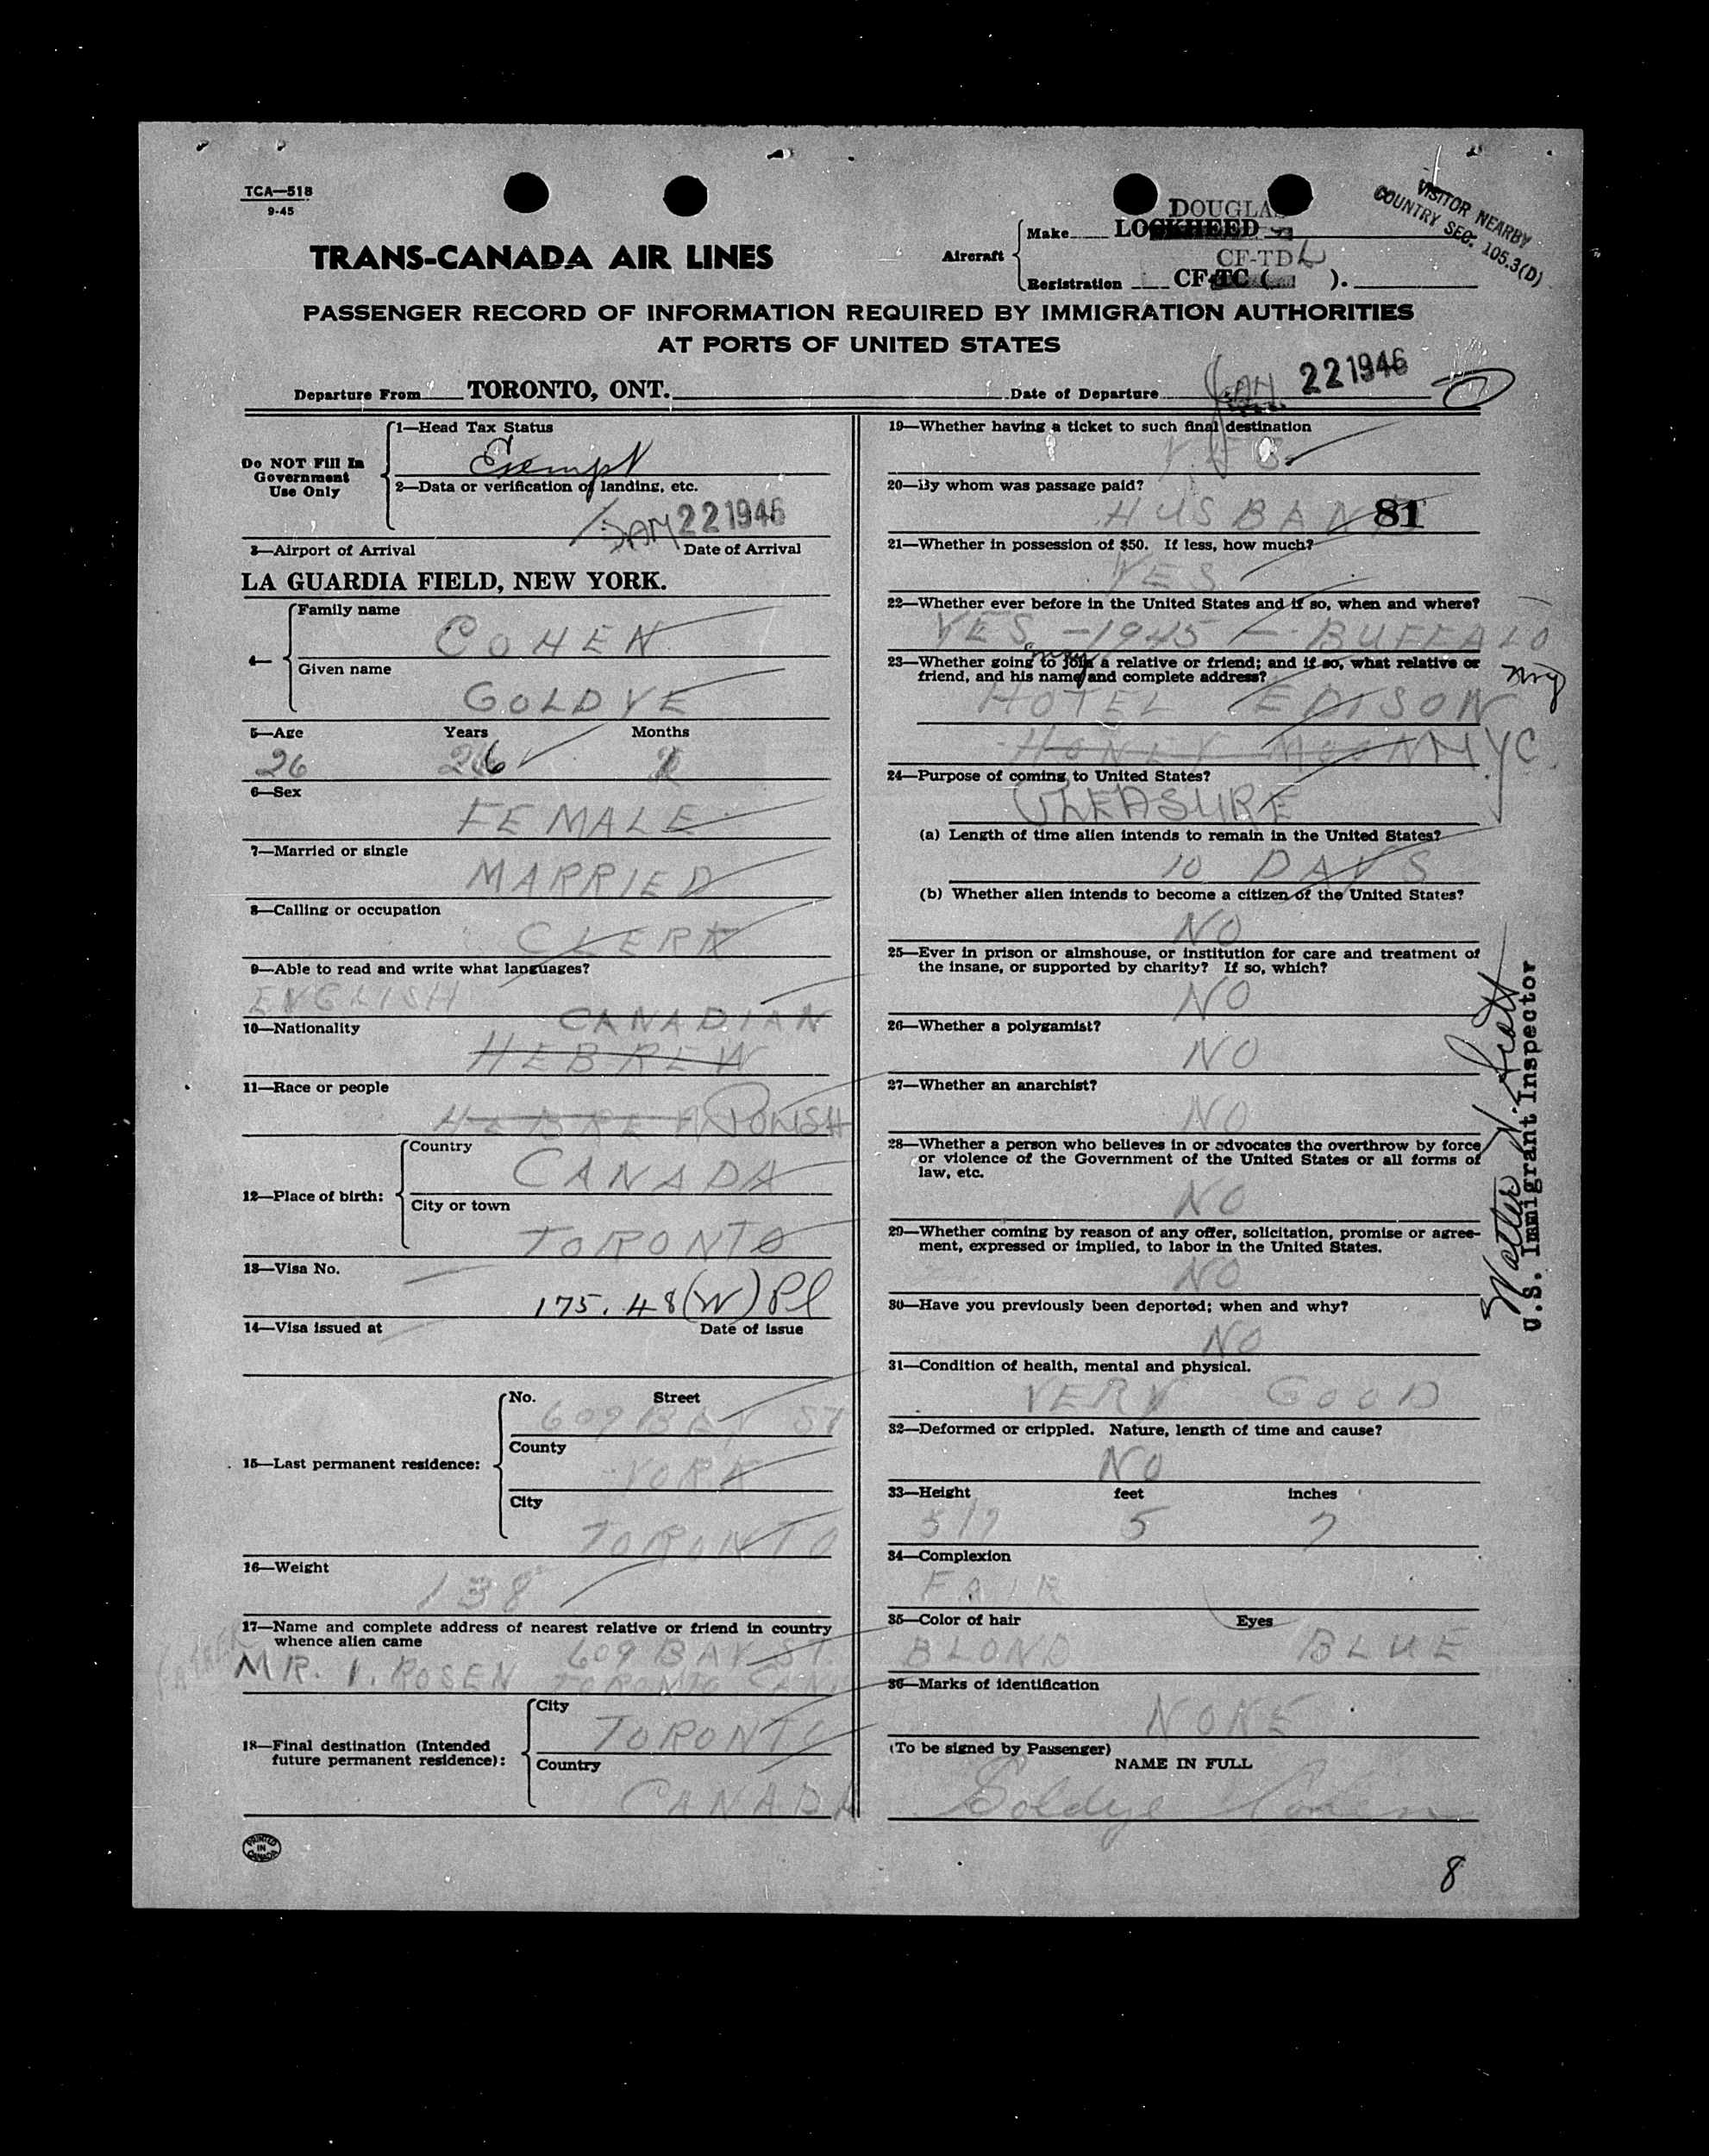 TCA—518
9-45
VISITOR NEARBY
COUNTRY SEC. 105.3(D)
DOUGLAS
Aircraft
Make LOCKHEED
CF-TDL
Registration CF-TC ( ).
TRANS-CANADA AIR LINES
PASSENGER RECORD OF INFORMATION REQUIRED BY IMMIGRATION AUTHORITIES
AT PORTS OF UNITED STATES
Departure From TORONTO, ONT. Date of Departure JAN 22 1946
Do NOT Fill In
Government
Use Only
1—Head Tax Status
Exempt
2—Data or verification of landing, etc.
JAN 22 1946
3—Airport of Arrival Date of Arrival
LA GUARDIA FIELD, NEW YORK.
4—
Family name
COHEN
Given name
GOLDYE
5—Age Years Months
26 26
6—Sex
FEMALE
7—Married or single
MARRIED
8—Calling or occupation
CLERK
9—Able to read and write what languages?
ENGLISH
10—Nationality CANADIAN
HEBREW
11—Race or people
HEBREW POLISH
12—Place of birth:
Country
CANADA
City or town
TORONTO
13—Visa No.
175.48(W) Pl
14—Visa issued at Date of issue
15—Last permanent residence:
No. Street
609 BAY ST
County
YORK
City
TORONTO
16—Weight
138
17—Name and complete address of nearest relative or friend in country
whence alien came
FATHER
609 BAY ST.
MR. I. ROSEN TORONTO CAN.
18—Final destination (Intended
future permanent residence):
City
TORONTO
Country
CANADA
PRINTED
IN
CANADA
19—Whether having a ticket to such final destination
YES
20—By whom was passage paid?
HUSBAND 81
21—Whether in possession of $50. If less, how much?
YES
22—Whether ever before in the United States and if so, when and where?
YES —1945 — BUFFALO
NY
23—Whether going to join a relative or friend; and if so, what relative or
friend, and his name and complete address?
HOTEL EDISON
HONEY MOON NYC.
24—Purpose of coming to United States?
PLEASURE
(a) Length of time alien intends to remain in the United States?
10 DAYS
(b) Whether alien intends to become a citizen of the United States?
NO
25—Ever in prison or almshouse, or institution for care and treatment of
the insane, or supported by charity? If so, which?
NO
26—Whether a polygamist?
NO
27—Whether an anarchist?
NO
28—Whether a person who believes in or advocates the overthrow by force
or violence of the Government of the United States or all forms of
law, etc.
NO
29—Whether coming by reason of any offer, solicitation, promise or agree-
ment, expressed or implied, to labor in the United States.
NO
30—Have you previously been deported; when and why?
NO
31—Condition of health, mental and physical.
VERY GOOD
32—Deformed or crippled. Nature, length of time and cause?
NO
33—Height feet inches
5'7 5 7
34—Complexion
FAIR
35—Color of hair Eyes
BLOND BLUE
36—Marks of identification
NONE
(To be signed by Passenger)
NAME IN FULL
Goldye Cohen
8
Walter N. Scott
U.S. Immigrant Inspector